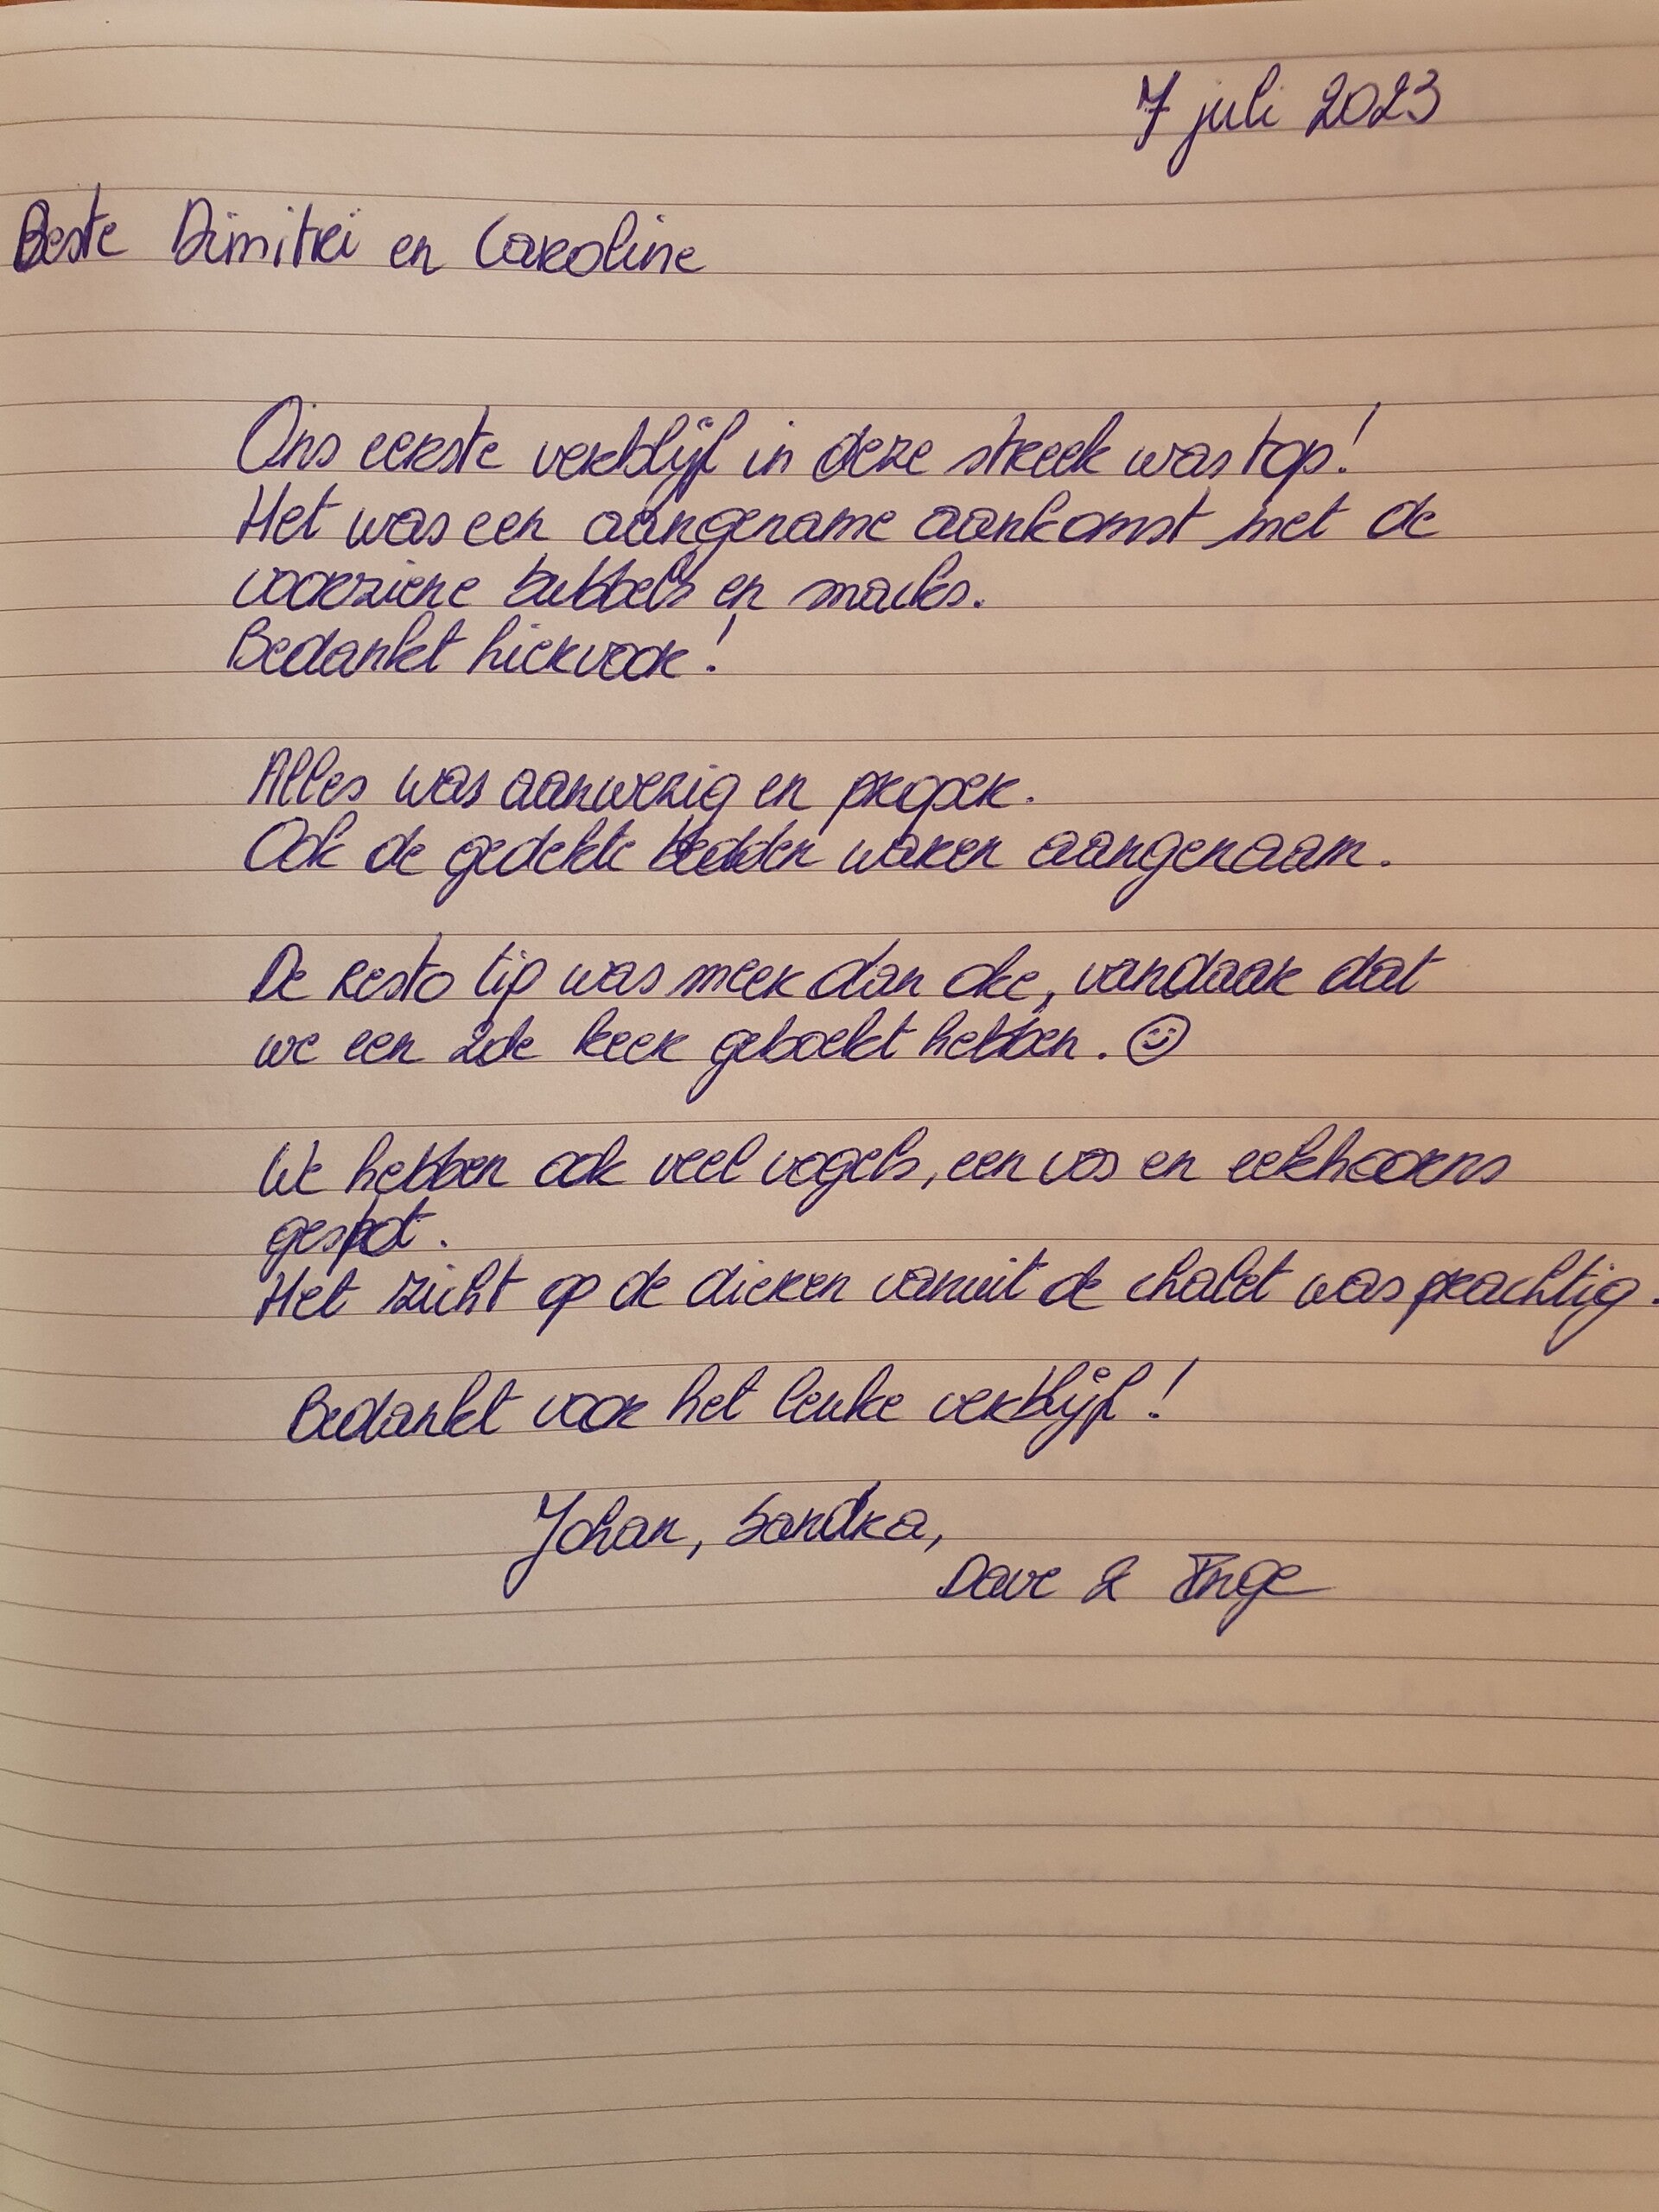 7 juli 2023
Beste Dimitri en Caroline
Ons eerste verblijf in deze streek was top!
Het was een aangename aankomst met de
voorziene bubbels en snacks.
Bedankt hiervoor!
Alles was aanwezig en proper.
Ook de gedekte bedden waren aangenaam.
De resto tip was meer dan oke, vandaar dat
we een 2de keer geboekt hebben. ☺
We hebben ook veel vogels, een vos en eekhoorns
gespot.
Het zicht op de dieren vanuit de chalet was prachtig.
Bedankt voor het leuke verblijf!
Johan, Sandra,
Dave & Inge